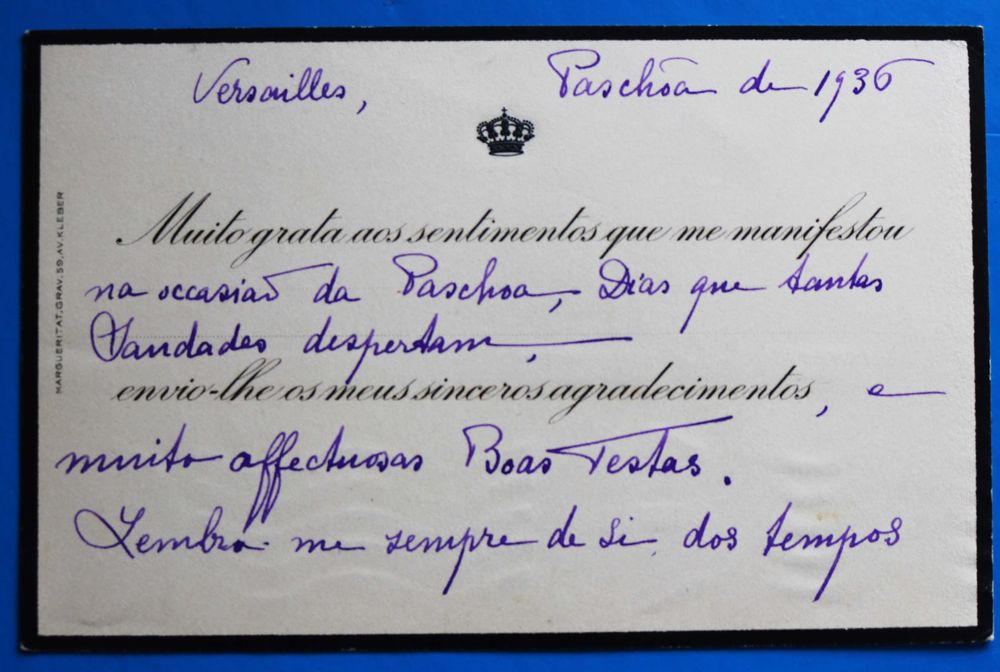 Versailles, Paschôa de 1936
Muito grata aos sentimentos que me manifestou
na occasião da Paschoa, Dias que tantas
Saudades despertam,
envio-lhe os meus sinceros agradecimentos, e
muito affectuosas Boas Festas.
Lembro-me sempre de si, dos tempos
MARGUERITAT, GRAV. 59, AV. KLEBER